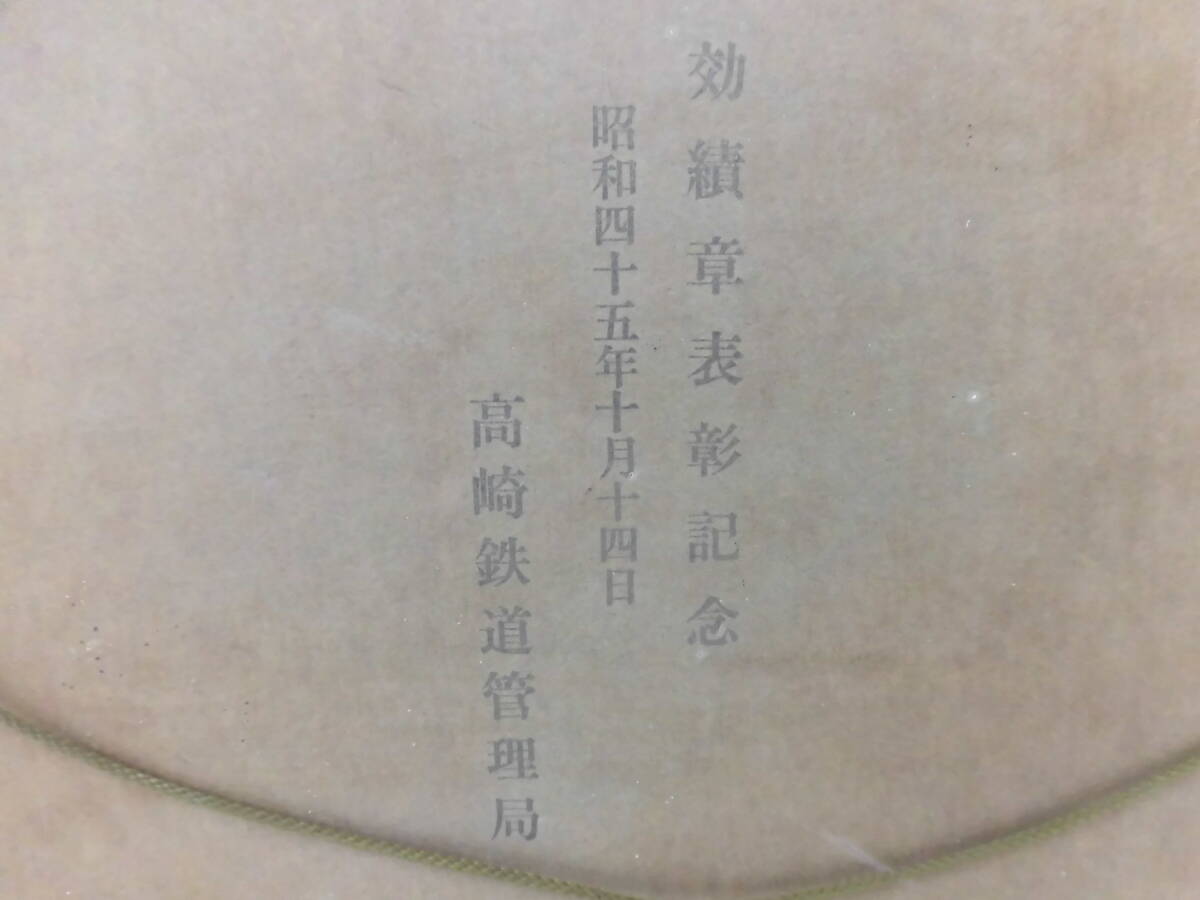 効績章表彰記念
昭和四十五年十月十四日
高崎鉄道管理局